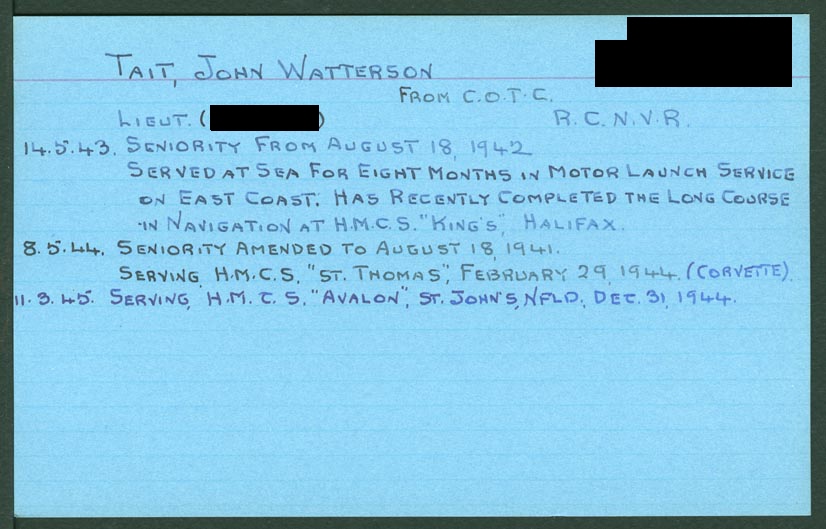 TAIT, JOHN WATTERSON
FROM C.O.T.C.
LIEUT. ( ) R.C.N.V.R.
14.5.43. SENIORITY FROM AUGUST 18, 1942
SERVED AT SEA FOR EIGHT MONTHS IN MOTOR LAUNCH SERVICE
ON EAST COAST. HAS RECENTLY COMPLETED THE LONG COURSE
IN NAVIGATION AT H.M.C.S. "KING'S", HALIFAX.
8.5.44. SENIORITY AMENDED TO AUGUST 18, 1941.
SERVING, H.M.C.S, "ST. THOMAS", FEBRUARY 29, 1944. (CORVETTE).
11.3.45. SERVING, H.M.C.S. "AVALON", ST. JOHN'S, NFLD., DEC. 31, 1944.